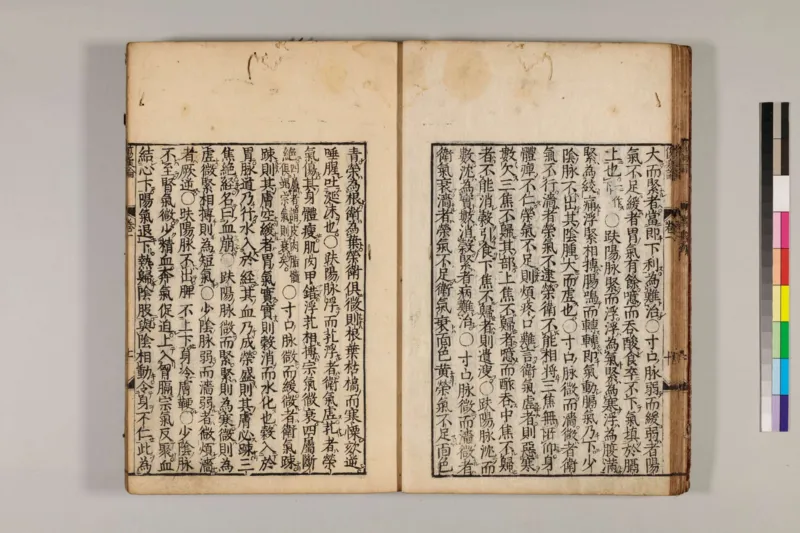 大而緊者當即下利為難治〇寸口脉弱而緩弱者陽
氣不足緩者胃氣有餘噫而吞酸食卒不下氣填於膈
上也〇趺陽脉緊而浮浮為氣緊為寒浮為腹滿
緊為絞痛浮緊相搏腸鳴而轉轉即氣動膈氣乃下少
陰脉不出其陰腫大而虛也〇寸口脉微而濇微者衛
氣不行濇者榮氣不逮榮衛不能相將三焦無所仰身
體痺不仁榮氣不足則煩疼口難言衛氣虛者則惡寒
數欠三焦不歸其部上焦不歸者噫而酢吞中焦不歸
者不能消穀引食下焦不歸者則遺溲〇趺陽脉沈而
數沈為實數消穀緊者病難治〇寸口脉微而濇微者
衛氣衰濇者榮氣不足衛氣衰面色黃榮氣不足面色
青榮為根衛為葉榮衛俱微則根葉枯槁而寒慄欬逆
唾腥吐涎沫也〇趺陽脉浮而芤浮者衛氣虛芤者榮
氣傷其身體瘦肌肉甲錯浮芤相搏宗氣微衰四屬斷
絶四屬者謂皮肉脂髓俱竭宗氣則衰矣〇寸口脉微而緩微者衛氣踈
踈則其膚空緩者胃氣實實則穀消而水化也穀入於
胃脉道乃行水入於經其血乃成榮盛則其膚必踈三
焦絶經名曰血崩〇趺陽脉微而緊緊則為寒微則為
虛微緊相搏則為短氣〇少陰脉弱而濇弱者微煩濇
者厥逆〇趺陽脉不出脾不上下身冷膚鞕〇少陰脉
不至腎氣微少精血奔氣促迫上入胷膈宗氣反聚血
結心下陽氣退下熱歸陰股與陰相動令身不仁此為